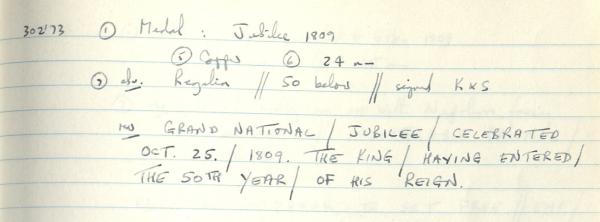 302'73 ① Medal : Jubilee 1809
⑤ Copper ⑥ 24 mm
⑦ obv. Regalia // 50 below // signed K & S
rev GRAND NATIONAL / JUBILEE / CELEBRATED
OCT. 25. / 1809. THE KING / HAVING ENTERED /
THE 50TH YEAR / OF HIS REIGN.